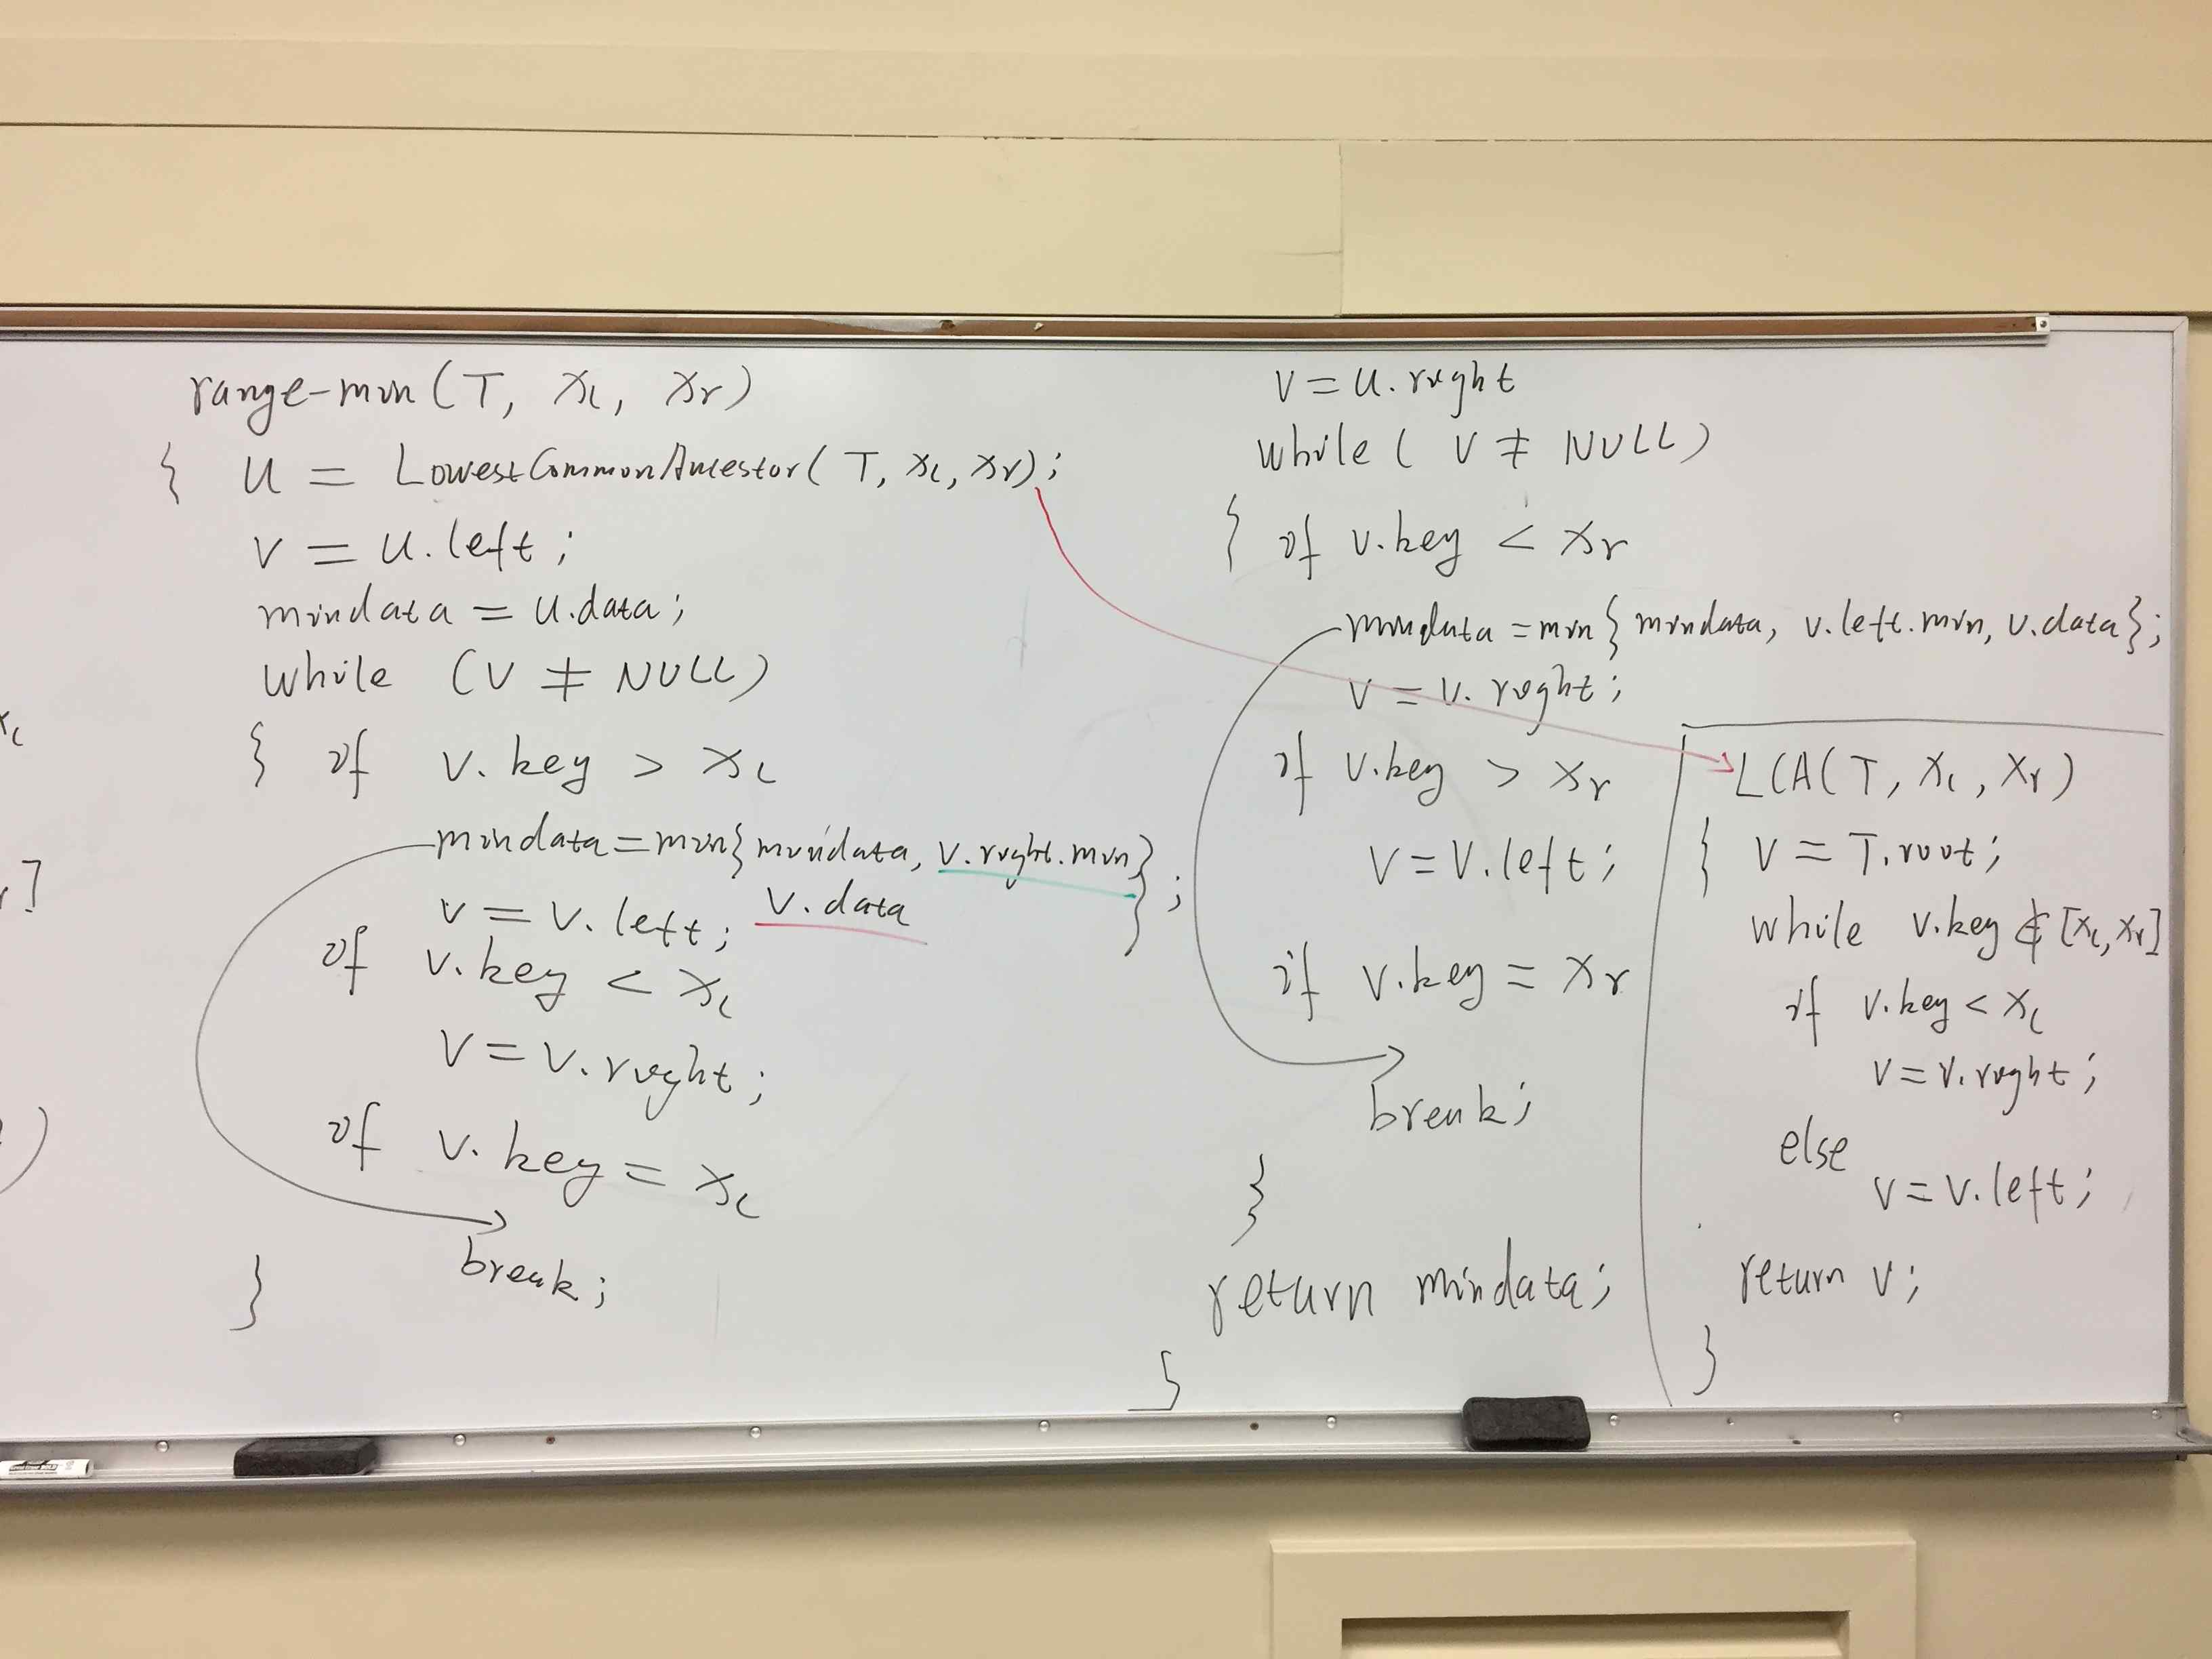 range-min(T, xl, xr)
{ u = LowestCommonAncestor(T, xl, xr);
v = u.left;
mindata = u.data;
while (v ≠ NULL)
{ if v.key > xl
mindata = min{mindata, v.right.min,
v.data };
v = v.left;
if v.key < xl
v = v.right;
if v.key = xl
break;
}
v = u.right
while ( v ≠ NULL)
{ if v.key < xr
mindata = min{ mindata, v.left.min, v.data};
v = v.right;
if v.key > xr
v = v.left;
if v.key = xr
break;
}
return mindata;
}
LCA(T, xl, xr)
{ v = T.root;
while v.key ∉ [xl, xr]
if v.key < xl
v = v.right;
else
v = v.left;
return v;
}